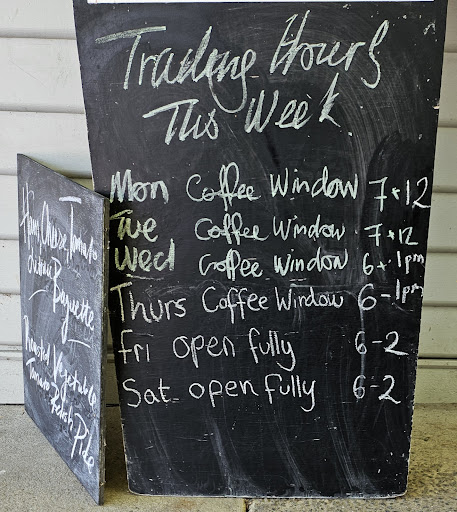 Trading Hours
This Week
Mon Coffee Window 7+12
Tue Coffee Window 7+12
Wed Coffee Window 6+1pm
Thurs Coffee Window 6-1pm
Fri open fully 6-2
Sat open fully 6-2
Ham, Cheese, Tomato
Baguette
Roasted Vegetable
Tomato Relish Pide